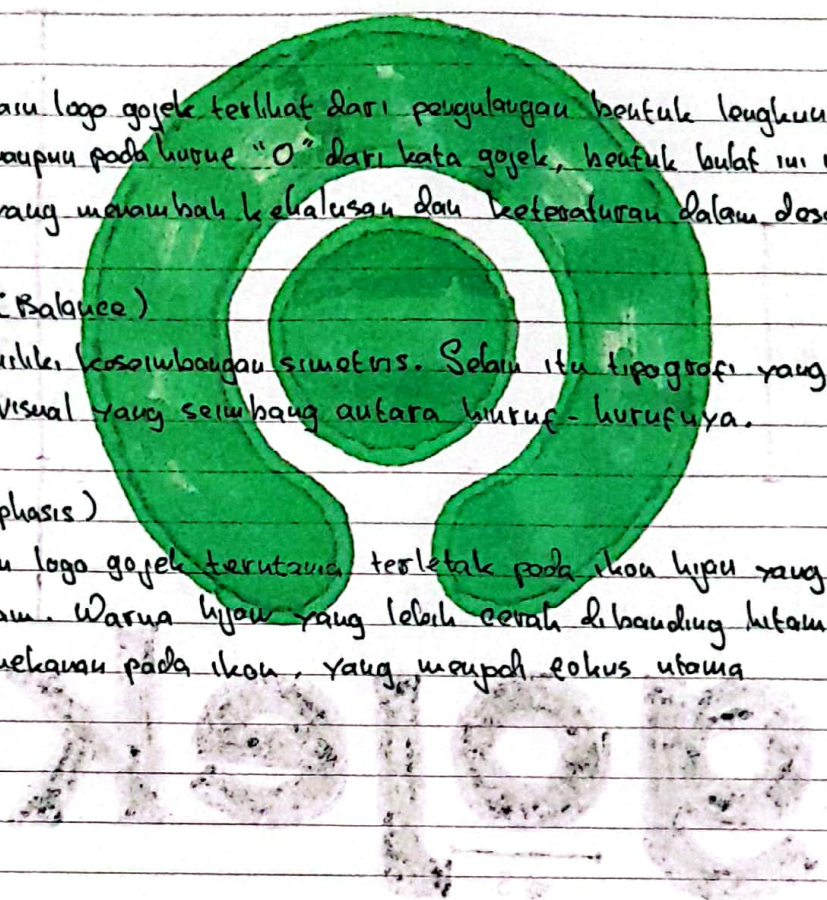 logo gojek terlihat dari pengulangan bentuk lengkun
maupun pada huruf "O" dari kata gojek, bentuk bulat ini
yang menambah kehalusan dan keteraturan dalam desa
Balance)
miliki keseimbangan simetris. Selain itu tipografi yang
visual yang seimbang antara hiuruf-hurufnya.
phasis)
logo gojek terutama terletak pada ikon hijau yang
am. Warna hijau yang lebih cerah dibanding hitam
nekanan pada ikon, yang menjadi fokus utama
gojek